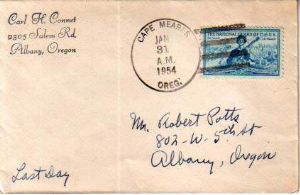 Carl H. Connet
2305 Salem Rd.
Albany, Oregon
CAPE MEARES
JAN
31
A.M.
1954
OREG.
NATIONAL GUARD OF THE U.S.
Mr. Robert Potts
802-W-5th St
Albany, Oregon
Last Day